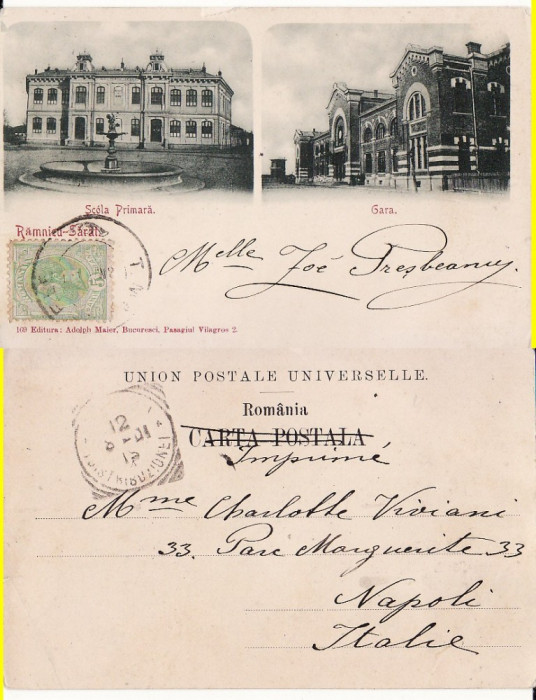 Școla Primară.
Gara.
Râmnicu-Sărat
Melle Zoé Presbeanu.
169 Editura: Adolph Maier, Bucuresci, Pasagiul Vilagros 2.
UNION POSTALE UNIVERSELLE.
România
CARTA POSTALA
Imprimé
DISTRIBUZIONE
Mme Charlotte Viviani
33. Parc Marguerite 33
Napoli
Italie